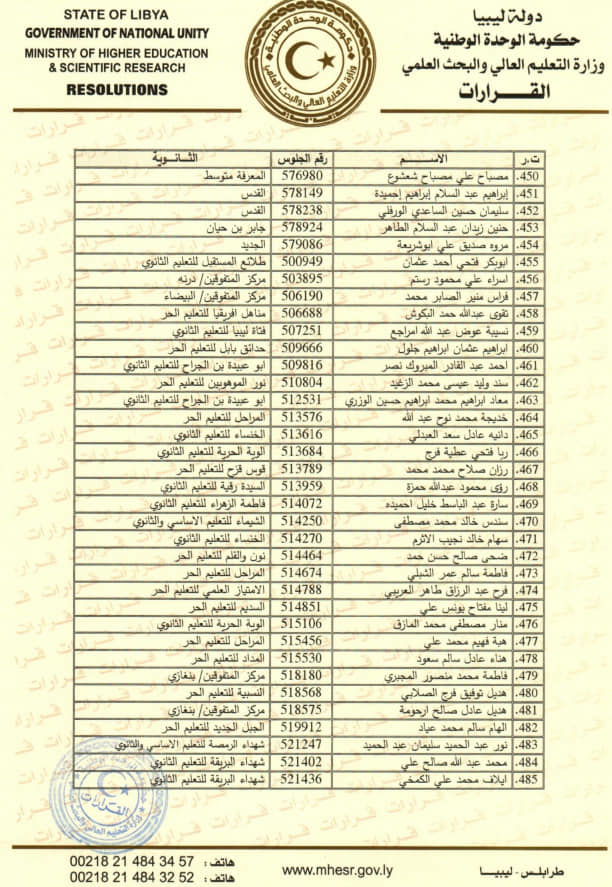 STATE OF LIBYA
GOVERNMENT OF NATIONAL UNITY
MINISTRY OF HIGHER EDUCATION
& SCIENTIFIC RESEARCH
RESOLUTIONS
دولة ليبيا
حكومة الوحدة الوطنية
وزارة التعليم العالي والبحث العلمي
القـــرارات
ت.ر الاســـم رقم الجلوس الثـانـويـة
450. مصباح علي مصباح شعشوع 576980 المعرفة متوسط
451. إبراهيم عبد السلام إبراهيم إحميدة 578149 القدس
452. سليمان حسين الساعدي الورفلي 578238 القدس
453. حنين زيدان عبد السلام الطاهر 578924 جابر بن حيان
454. مروه صديق علي ابوشريعة 579086 الجديد
455. ابوبكر فتحي أحمد عثمان 500949 طلائع المستقبل للتعليم الثانوي
456. اسراء علي محمود رستم 503895 مركز المتفوقين/ درنه
457. فراس منير الصابر محمد 506190 مركز المتفوقين/ البيضاء
458. تقوى عبدالله حمد البكوش 506688 مناهل افريقيا للتعليم الحر
459. نسيبة عوض عبد الله امراجع 507251 فتاة ليبيا للتعليم الثانوي
460. ابراهيم عثمان ابراهيم جلول 509666 حدائق بابل للتعليم الحر
461. احمد عبد القادر المبروك نصر 509816 ابو عبيدة بن الجراح للتعليم الثانوي
462. سند وليد عيسى محمد الزغيد 510804 نور الموهوبين للتعليم الحر
463. معاد ابراهيم محمد ابراهيم حسين الوزري 512531 ابو عبيدة بن الجراح للتعليم الثانوي
464. خديجة محمد نوح عبد الله 513576 المراحل للتعليم الحر
465. دانيه عادل سعد العبدلي 513616 الخنساء للتعليم الثانوي
466. ربا فتحي عطية فرج 513684 الوية الحرية للتعليم الثانوي
467. رزان صلاح محمد محمد 513789 قوس قزح للتعليم الحر
468. رؤى محمود عبدالله حمزة 513959 السيدة رقية للتعليم الثانوي
469. سارة عبد الباسط خليل احميده 514072 فاطمة الزهراء للتعليم الثانوي
470. سندس خالد محمد مصطفى 514250 الشيماء للتعليم الاساسي والثانوي
471. سهام خالد نجيب الاثرم 514270 الخنساء للتعليم الثانوي
472. ضحى صالح حسن حمد 514464 نون والقلم للتعليم الحر
473. فاطمة سالم عمر الشبلي 514674 المراحل للتعليم الحر
474. فرح عبد الرزاق طاهر العريبي 514788 الامتياز العلمي للتعليم الحر
475. لينا مفتاح يونس علي 514851 السديم للتعليم الحر
476. منار مصطفى محمد المازق 515106 الوية الحرية للتعليم الثانوي
477. هبة فهيم محمد علي 515456 المراحل للتعليم الحر
478. هناء عادل سالم سعود 515530 المداد للتعليم الحر
479. فاطمة محمد منصور المجبري 518180 مركز المتفوقين/ بنغازي
480. هديل توفيق فرج الصلابي 518568 النسيبة للتعليم الحر
481. هديل عادل صالح ارحومة 518575 مركز المتفوقين/ بنغازي
482. الهام سالم محمد عياد 519912 الجبل الجديد للتعليم الحر
483. نور عبد الحميد سليمان عبد الحميد 521247 شهداء الرمصة للتعليم الاساسي والثانوي
484. محمد عبد الله صالح علي 521402 شهداء البريقة للتعليم الثانوي
485. ايلاف محمد علي الكمخي 521436 شهداء البريقة للتعليم الثانوي
00218 21 484 34 57 هاتف :
00218 21 484 32 52 هاتف :
www.mhesr.gov.ly
طرابلس - ليبيــا